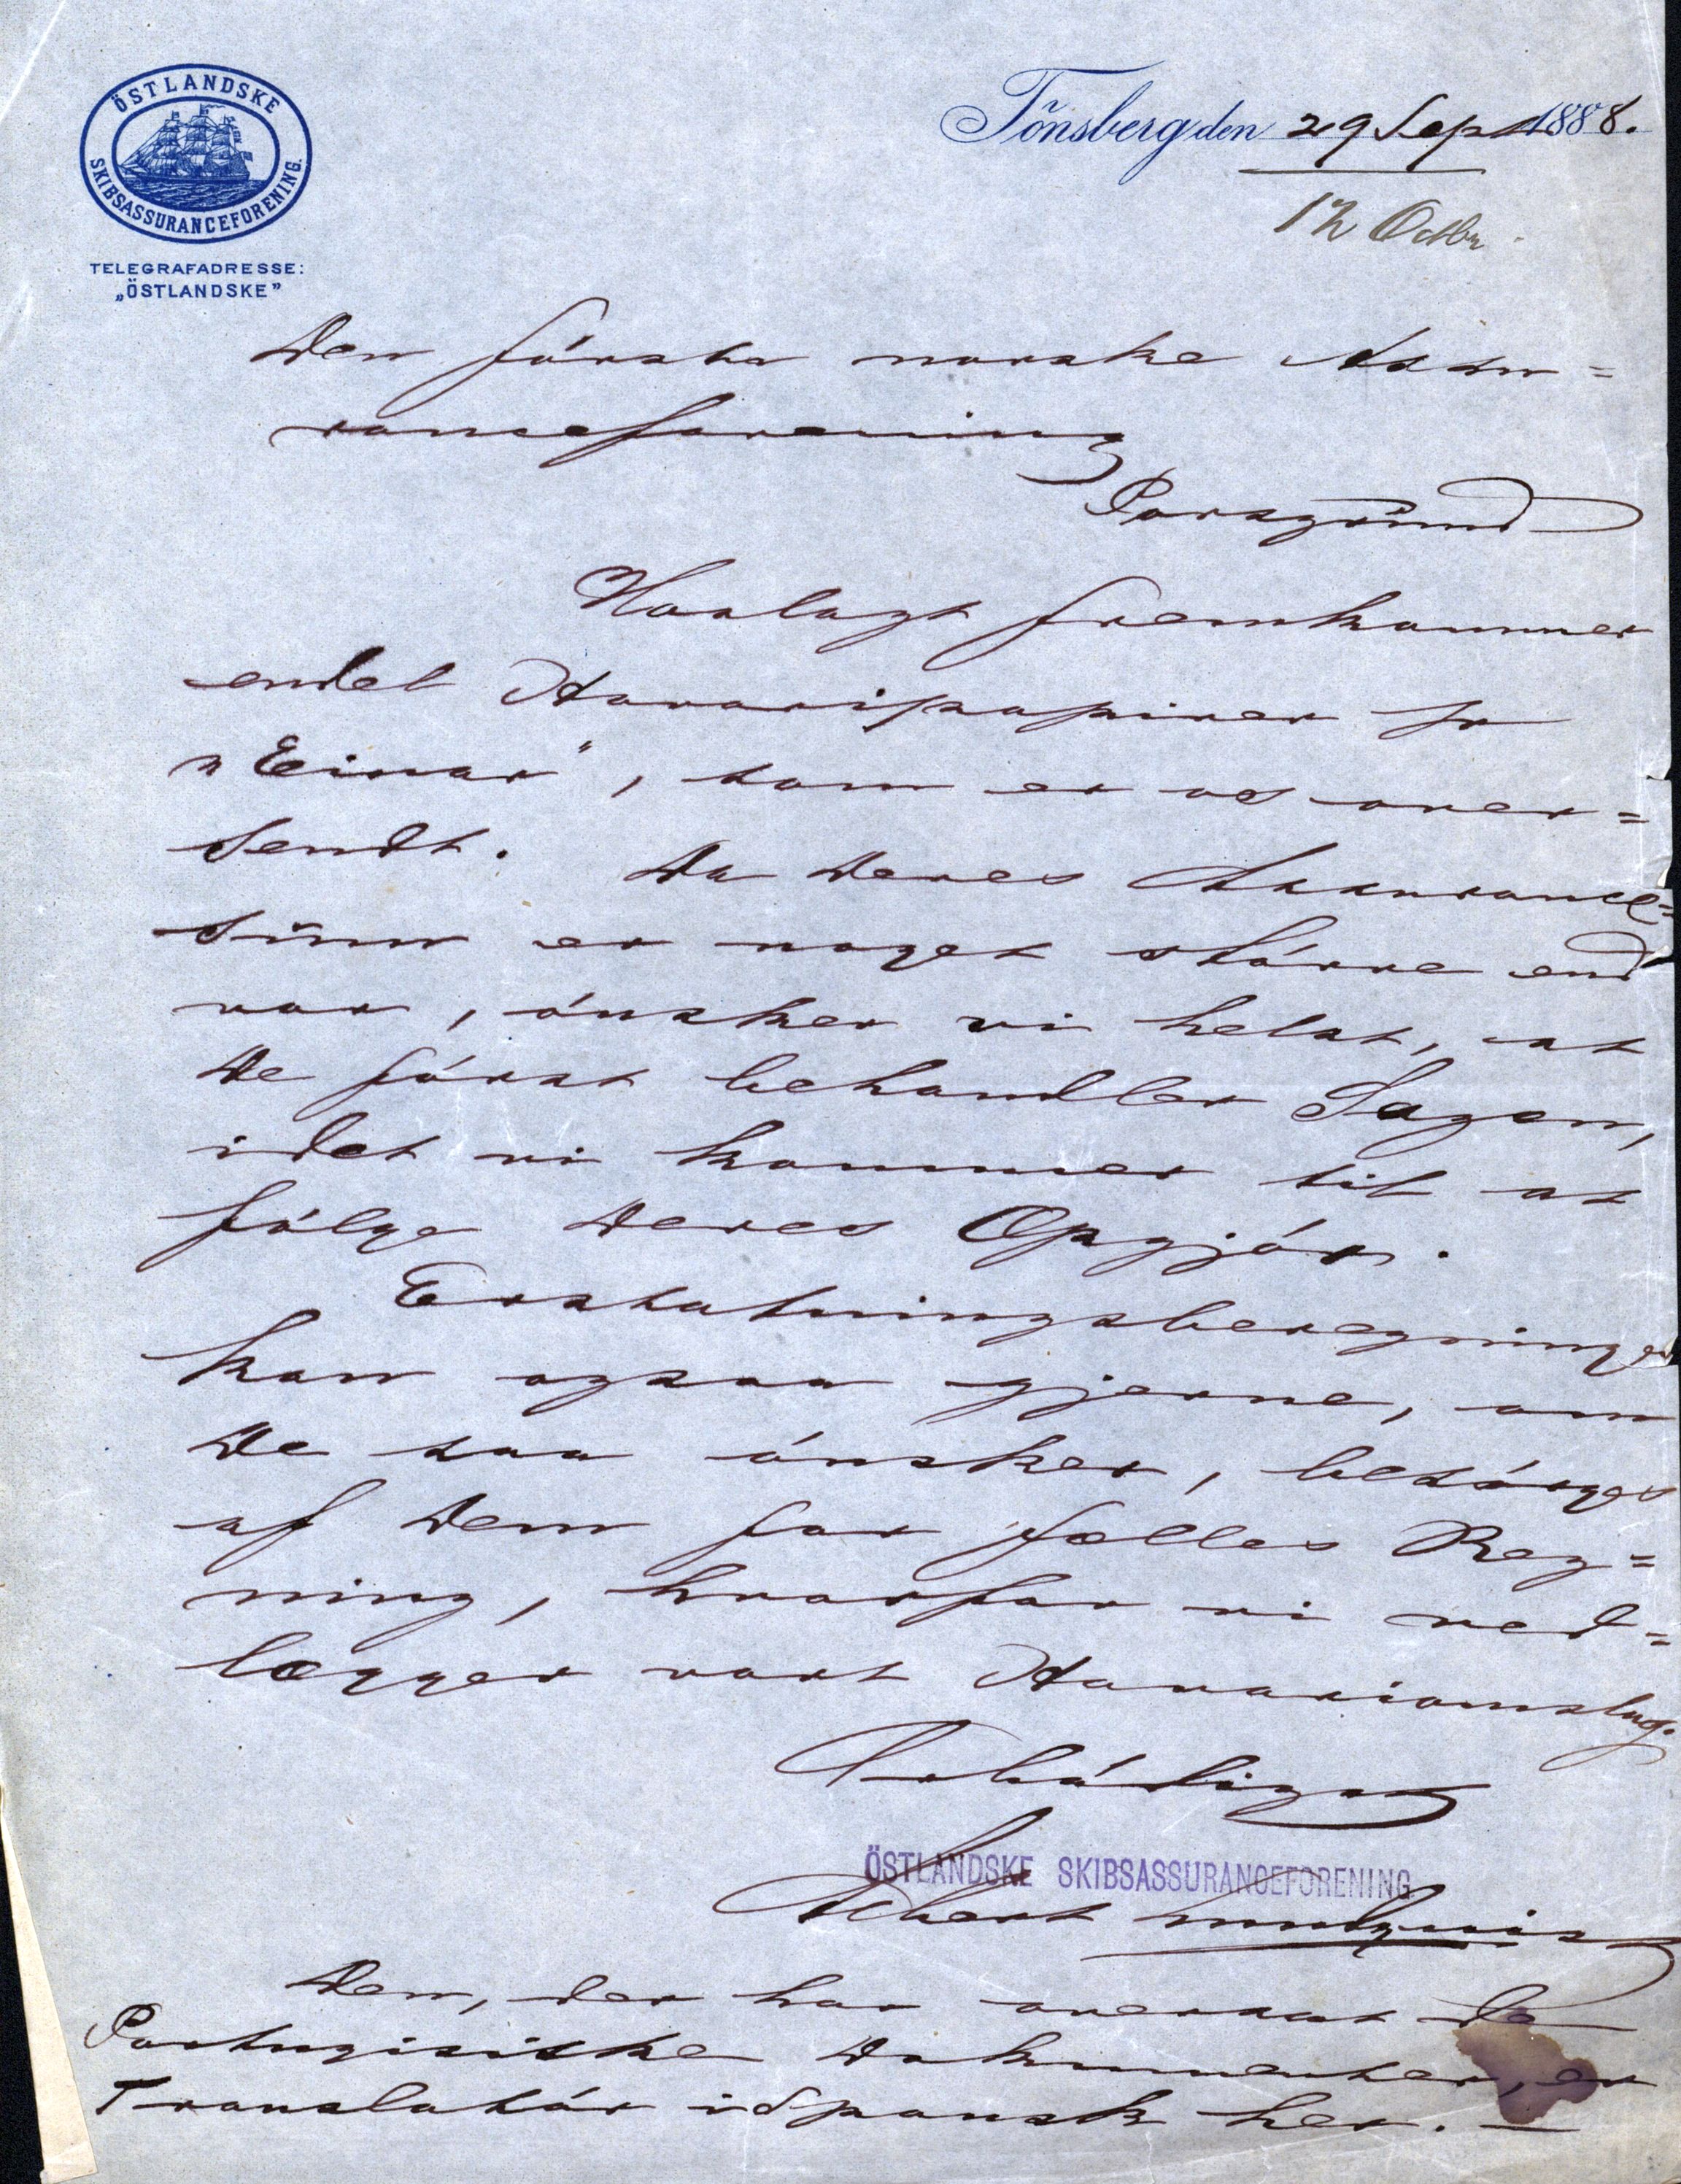 ÖSTLANDSKE
SKIBSASSURANCEFORENING.
TELEGRAFADRESSE:
„ÖSTLANDSKE”
Tönsberg den 29 Sept 1888.
12 Octbr
Den förste norske Assu=
ranceforening
Porsgrund
Vorlagt fremkommer
endel Havaripapirer fr
„Einar", som er os over=
sendt. Da Deres Assurance=
sum er noget större end
vor, önsker vi helst, at
De först behandler Sagen,
idet vi kommer til at
fölge Deres Opgjör.
Erstatningsberegningen
kan ogsaa gjerne, om
De saa önsker, besörges
af Dem for fælles Reg=
ning, hvorfor vi ved=
lægger vort Havariomslag.
Ærbödigst
ÖSTLANDSKE SKIBSASSURANCEFORENING
Den, der har oversat de
Portugisiske Dokumenter, er
Translatör i Spansk her. —